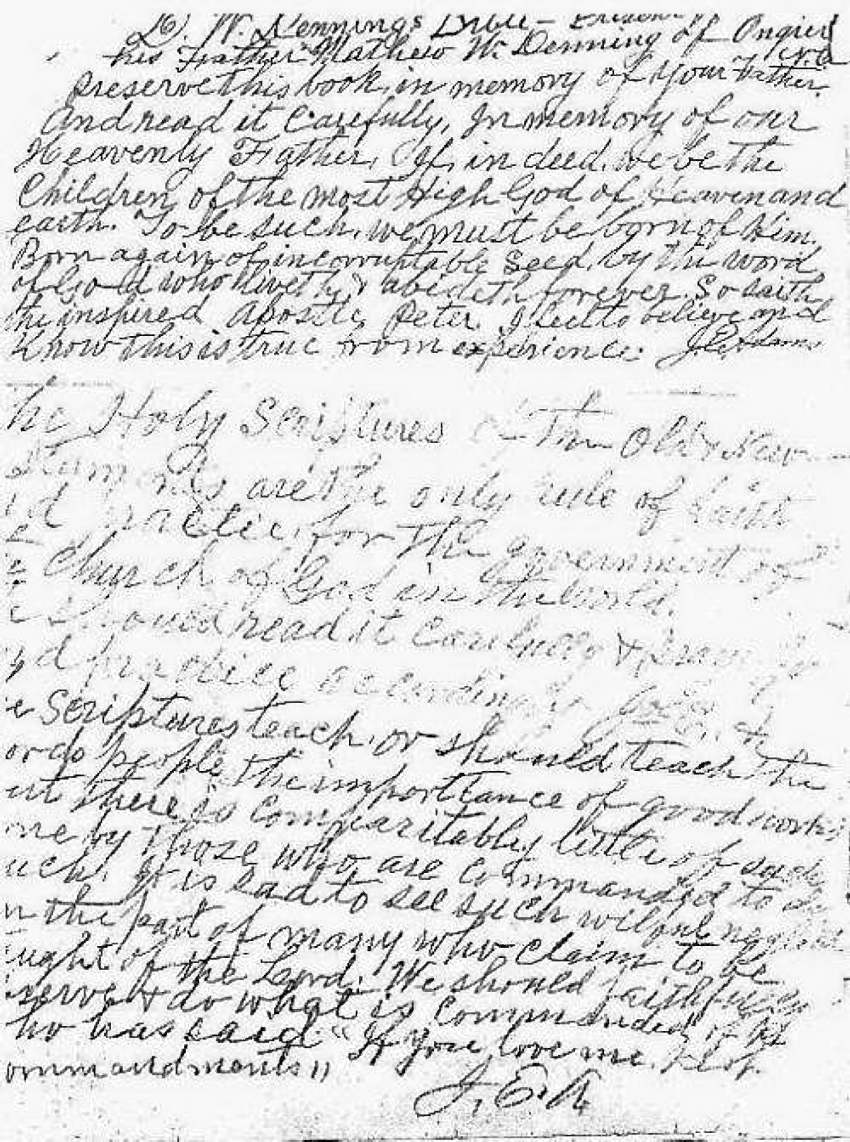 D. W. Dennings Bible –
his Father Mathew W. Denning of Angier N.C.
preserve this book, in memory of your Father.
And read it Carefully, In memory of our
Heavenly Father, If, in deed, we be the
Children of the most High God of Heaven and
earth. To be such, we must be born of Him,
Born again of, incorruptable seed, by the word
of God who liveth & abideth forever. So saith
the inspired Apostle Peter. I feel to believe and
Know this is true from experience. J.E. Adams
he Holy Scriptures of the Old & New
are the only rule of faith
practice, for the government of
Church of God in the world.
should read it carefully &
d practice accordingly
e Scriptures teach, or should teach the
ords people the importance of good works
ut there is comparitably little of such
one by those who are commanded to do
uch. It is sad to see such wilful neglect
n the part of many who claim to be
aught of the Lord. We should faithfully
serve & do what is commanded of
ho has said "If you love me, Keep
ommandments"
J. E. A